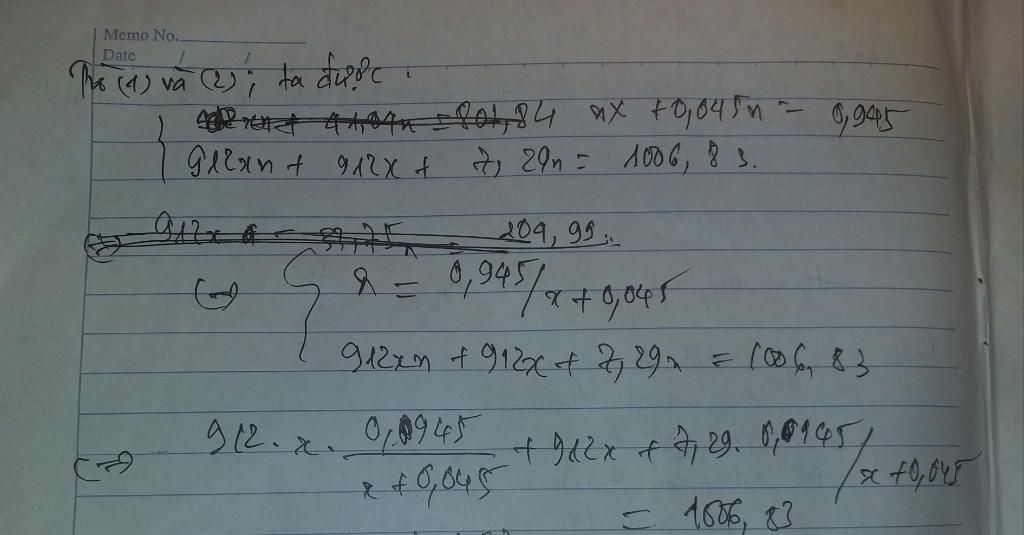 Memo No.
Date / /
Từ (1) và (2), ta được:
nx + 0,045n = 0,945
912xn + 912x + 7,29n = 1006,83.
(=) n = 0,945/x + 0,045
912xn + 912x + 7,29n = 1006,83
(=) 912. x. 0,0945/x + 0,045 + 912x + 7,29. 0,0945/x + 0,045
= 1006,83